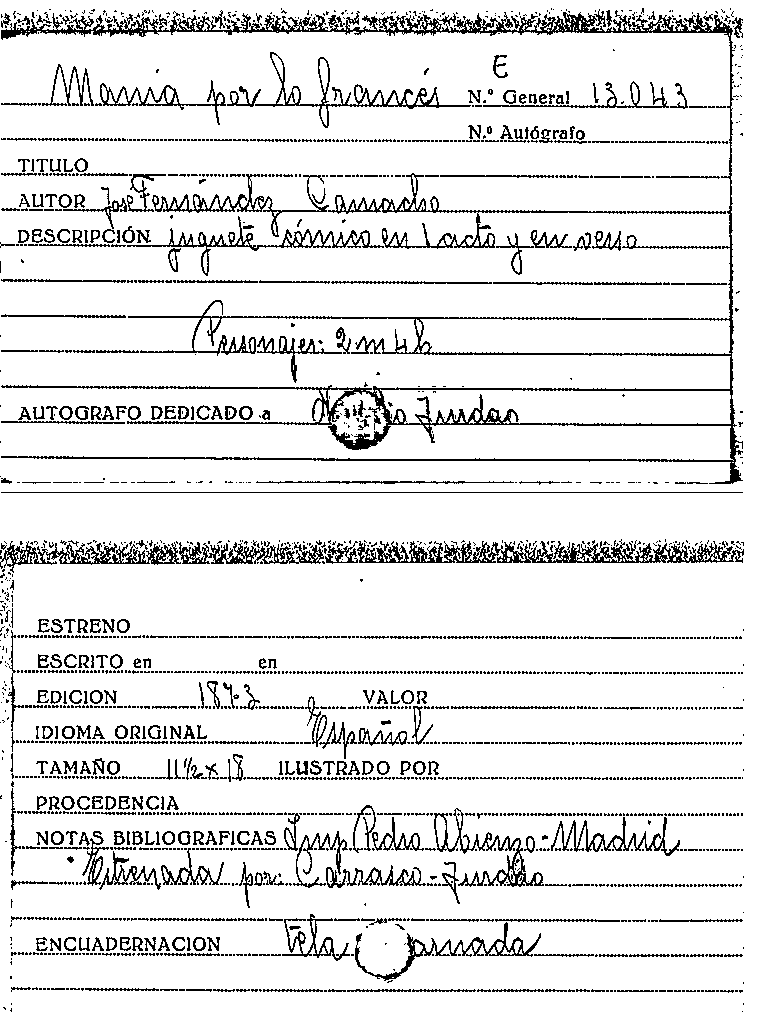 E
Mania por lo francés N.º General 13.043
N.º Autógrafo
TITULO
AUTOR José Fernández Camacho
DESCRIPCIÓN juguete cómico en 1 acto y en verso
Personajes: 2 m 4 h
AUTOGRAFO DEDICADO a
ESTRENO
ESCRITO en en
EDICION 1873 VALOR
IDIOMA ORIGINAL Español
TAMAÑO 11 1/2 x 18 ILUSTRADO POR
PROCEDENCIA
NOTAS BIBLIOGRAFICAS Imp Pedro Abienzo - Madrid
Estrenada por: Carrasco -
ENCUADERNACION tela